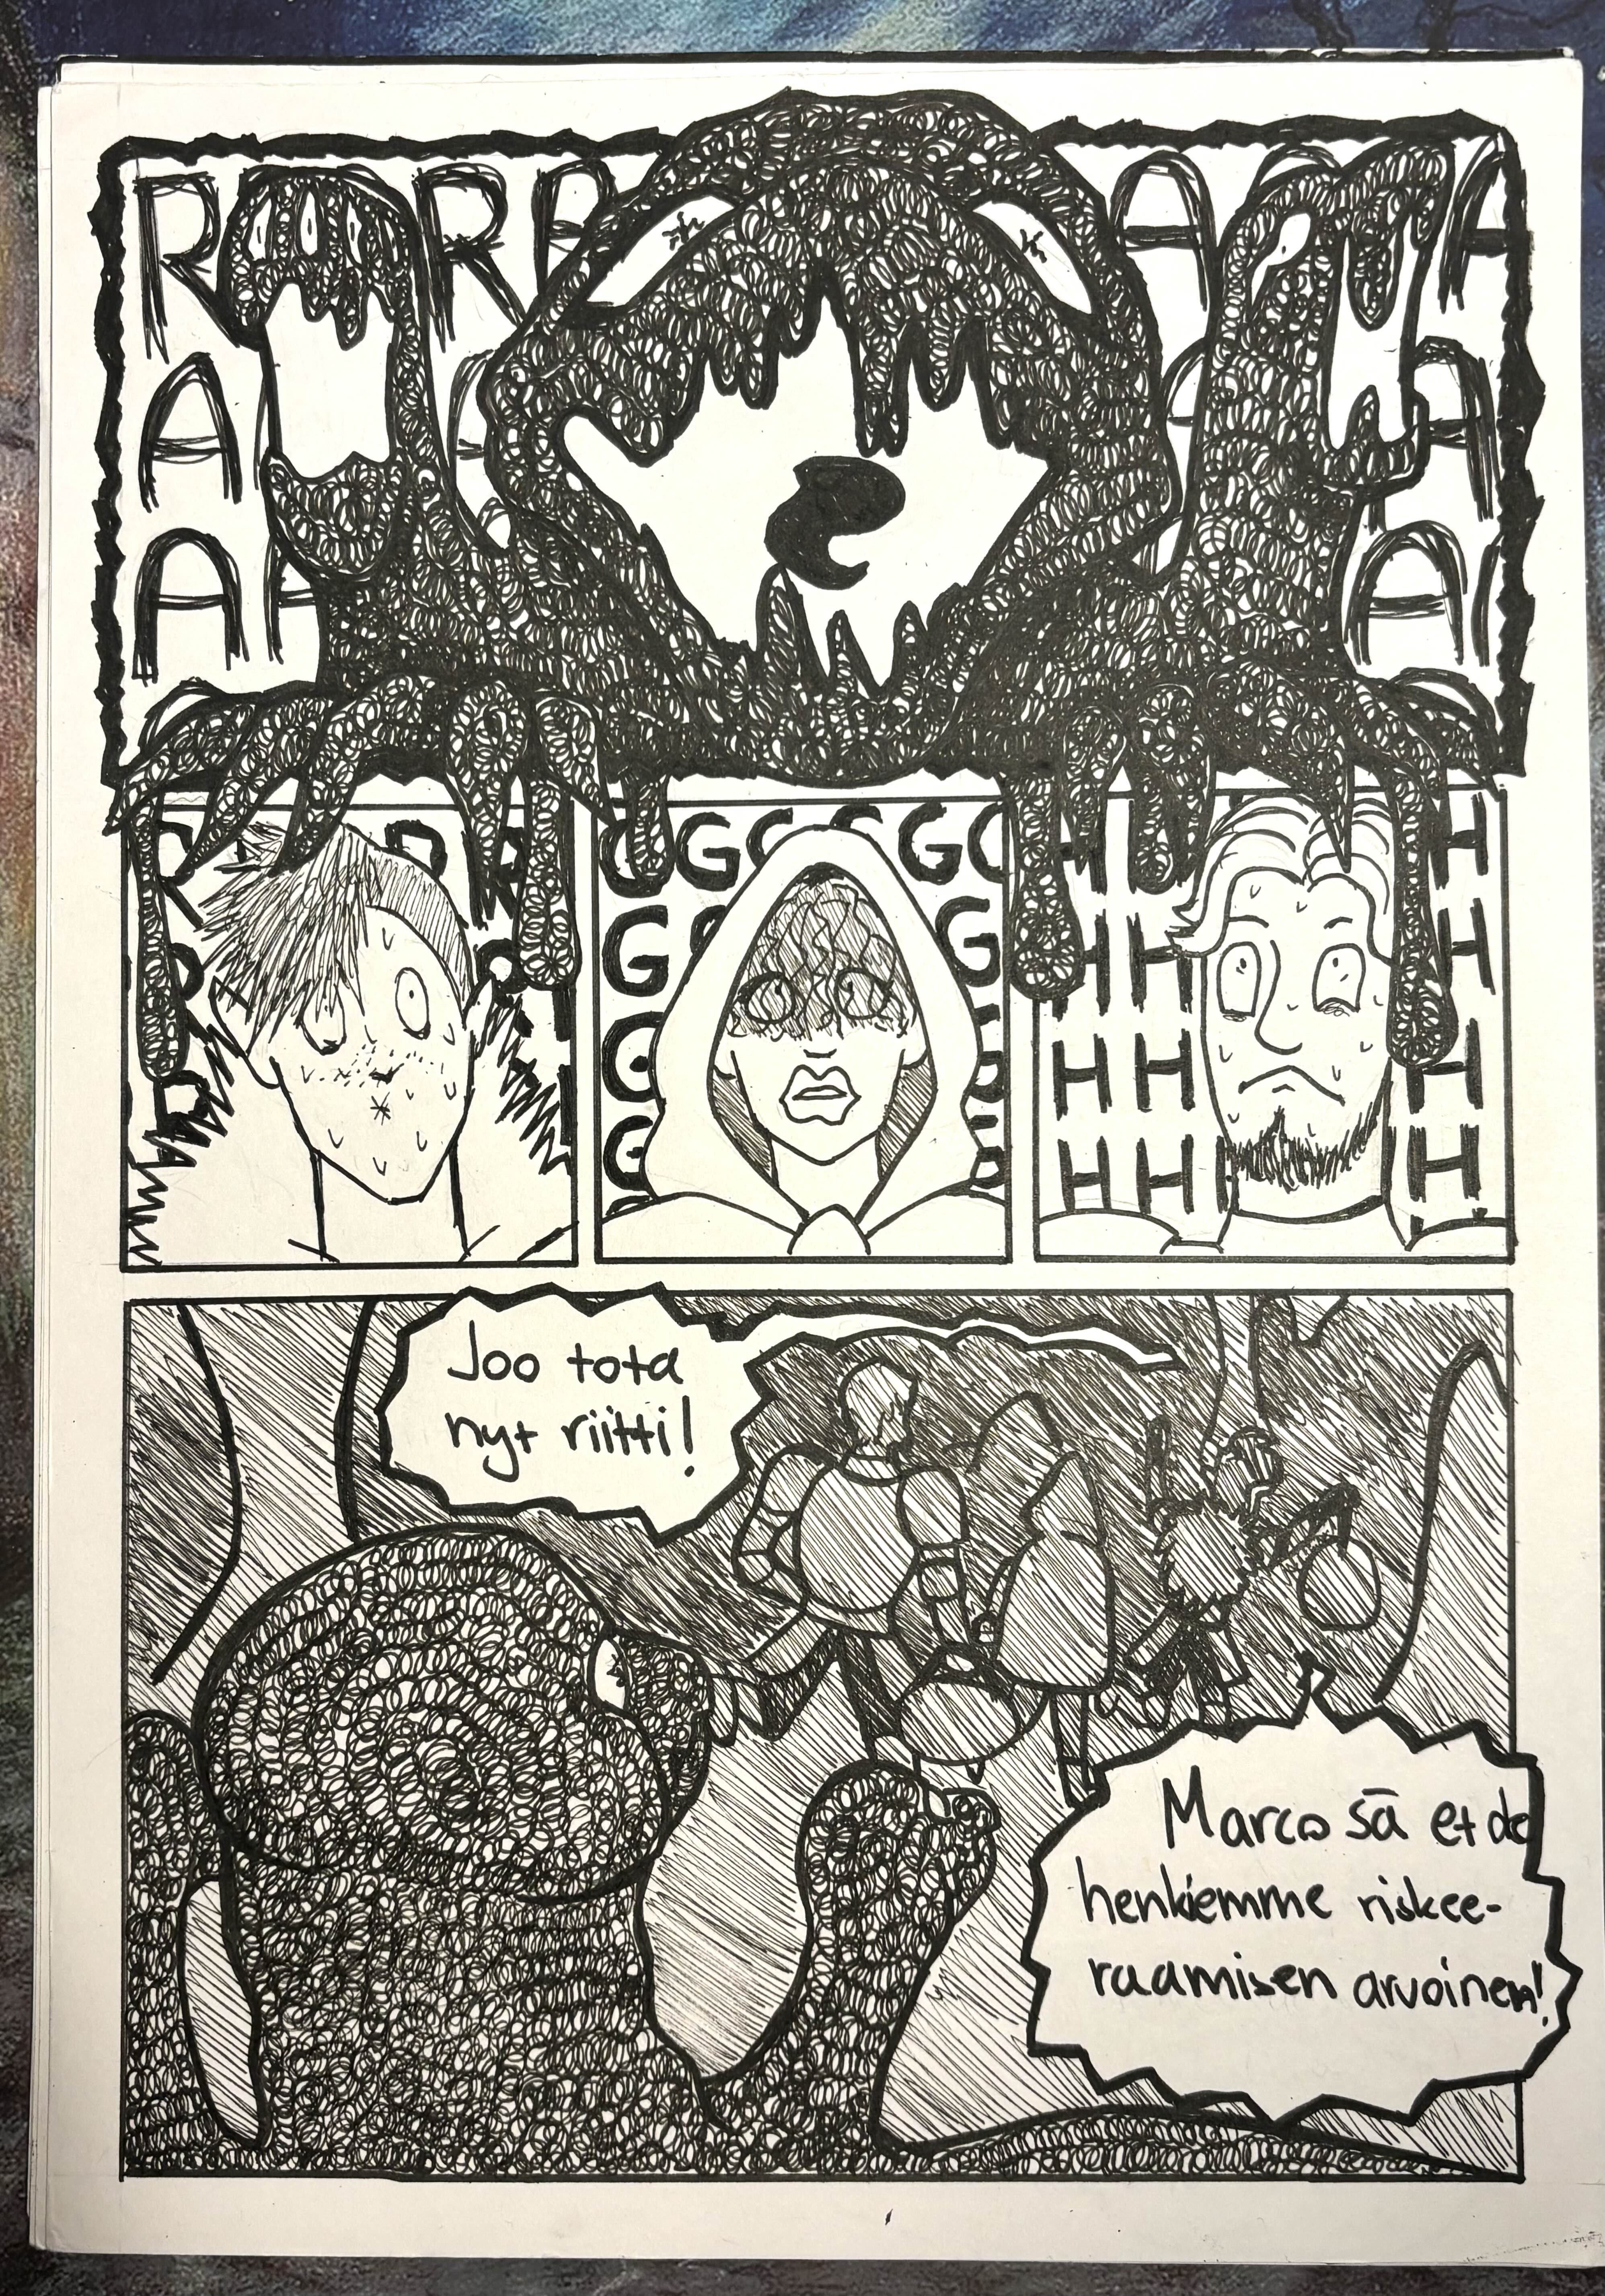 R R R A A A
A A
A A A A
R R R
G G G G G
G G
G
G
H H H
H H H
H H H
H H H
Joo tota
nyt riitti!
Marco sä et oo
henkiemme riskee-
raamisen arvoinen!